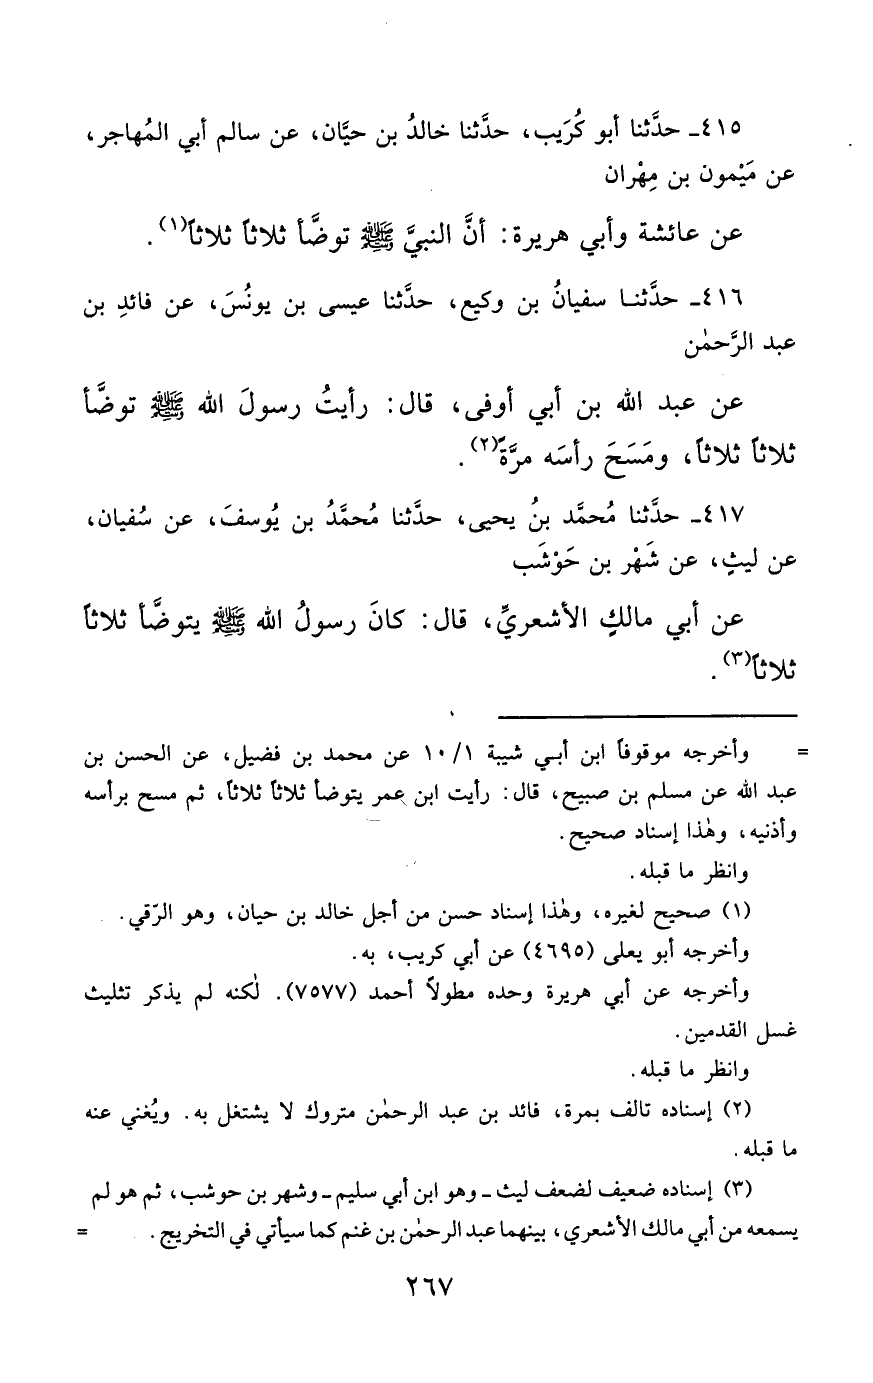 ٤١٥ـ حدَّثنا أبو كُرَيب، حدَّثنا خالدُ بن حيَّان، عن سالم أبي المُهاجر،
عن مَيْمون بن مِهْران
عن عائشة وأبي هريرة: أنَّ النبيَّ ﷺ توضَّأ ثلاثاً ثلاثاً(١).
٤١٦ـ حدَّثنا سفيانُ بن وكيع، حدَّثنا عيسى بن يونُسَ، عن فائدِ بن
عبد الرَّحمٰن
عن عبد الله بن أبي أوفى، قال: رأيتُ رسولَ الله ﷺ توضَّأ
ثلاثاً ثلاثاً، ومَسَحَ رأسَه مرَّةً(٢).
٤١٧ـ حدَّثنا مُحمَّد بنُ يحيى، حدَّثنا مُحمَّدُ بن يُوسفَ، عن سُفيان،
عن ليثٍ، عن شَهْر بن حَوْشَب
عن أبي مالكٍ الأشعريِّ، قال: كانَ رسولُ الله ﷺ يتوضَّأ ثلاثاً
ثلاثاً(٣).
= وأخرجه موقوفاً ابن أبي شيبة ١٠/١ عن محمد بن فضيل، عن الحسن بن
عبد الله عن مسلم بن صبيح، قال: رأيت ابن عمر يتوضأ ثلاثاً ثلاثاً، ثم مسح برأسه
وأذنيه، وهٰذا إسناد صحيح.
وانظر ما قبله.
(١) صحيح لغيره، وهٰذا إسناد حسن من أجل خالد بن حيان، وهو الرّقي.
وأخرجه أبو يعلى (٤٦٩٥) عن أبي كريب، به.
وأخرجه عن أبي هريرة وحده مطولاً أحمد (٧٥٧٧). لٰكنه لم يذكر تثليث
غسل القدمين.
وانظر ما قبله.
(٢) إسناده تالف بمرة، فائد بن عبد الرحمٰن متروك لا يشتغل به. ويُغني عنه
ما قبله.
(٣) إسناده ضعيف لضعف ليث ـ وهو ابن أبي سليم ـ وشهر بن حوشب، ثم هو لم
يسمعه من أبي مالك الأشعري، بينهما عبد الرحمٰن بن غنم كما سيأتي في التخريج. =
٢٦٧